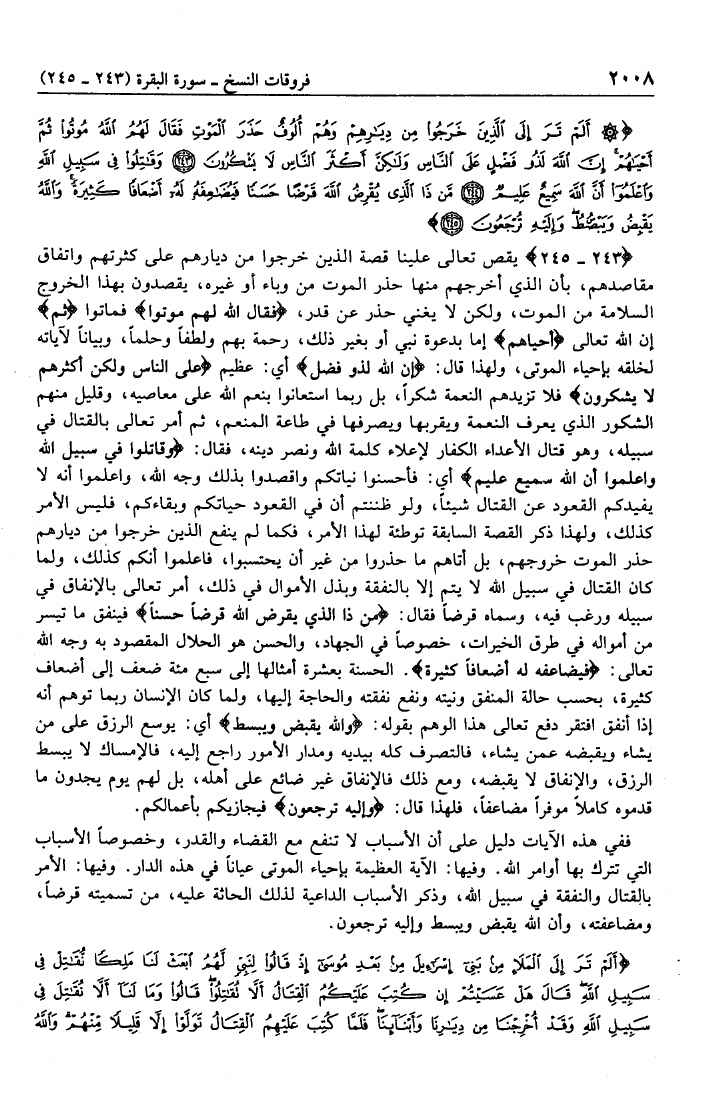 ٢٠٠٨ فروقات النسخ ـ سورة البقرة (٢٤٣ ـ ٢٤٥)
﴿۞ أَلَمْ تَرَ إِلَى ٱلَّذِينَ خَرَجُوا۟ مِن دِيَـٰرِهِمْ وَهُمْ أُلُوفٌ حَذَرَ ٱلْمَوْتِ فَقَالَ لَهُمُ ٱللَّهُ مُوتُوا۟ ثُمَّ
أَحْيَـٰهُمْ ۚ إِنَّ ٱللَّهَ لَذُو فَضْلٍ عَلَى ٱلنَّاسِ وَلَـٰكِنَّ أَكْثَرَ ٱلنَّاسِ لَا يَشْكُرُونَ ﴿٢٤٣﴾ وَقَـٰتِلُوا۟ فِى سَبِيلِ ٱللَّهِ
وَٱعْلَمُوٓا۟ أَنَّ ٱللَّهَ سَمِيعٌ عَلِيمٌ ﴿٢٤٤﴾ مَّن ذَا ٱلَّذِى يُقْرِضُ ٱللَّهَ قَرْضًا حَسَنًا فَيُضَـٰعِفَهُۥ لَهُۥٓ أَضْعَافًا كَثِيرَةً ۚ وَٱللَّهُ
يَقْبِضُ وَيَبْصُۜطُ وَإِلَيْهِ تُرْجَعُونَ ﴿٢٤٥﴾﴾
﴿٢٤٣ ـ ٢٤٥﴾ يقص تعالى علينا قصة الذين خرجوا من ديارهم على كثرتهم واتفاق
مقاصدهم، بأن الذي أخرجهم منها حذر الموت من وباء أو غيره، يقصدون بهذا الخروج
السلامة من الموت، ولكن لا يغني حذر عن قدر، ﴿فقال الله لهم موتوا﴾ فماتوا ﴿ثم﴾
إن الله تعالى ﴿أحياهم﴾ إما بدعوة نبي أو بغير ذلك، رحمة بهم ولطفاً وحلماً، وبياناً لآياته
لخلقه بإحياء الموتى، ولهذا قال: ﴿إن الله لذو فضل﴾ أي: عظيم ﴿على الناس ولكن أكثرهم
لا يشكرون﴾ فلا تزيدهم النعمة شكراً، بل ربما استعانوا بنعم الله على معاصيه، وقليل منهم
الشكور الذي يعرف النعمة ويقربها ويصرفها في طاعة المنعم، ثم أمر تعالى بالقتال في
سبيله، وهو قتال الأعداء الكفار لإعلاء كلمة الله ونصر دينه، فقال: ﴿وقاتلوا في سبيل الله
واعلموا أن الله سميع عليم﴾ أي: فأحسنوا نياتكم واقصدوا بذلك وجه الله، واعلموا أنه لا
يفيدكم القعود عن القتال شيئاً، ولو ظننتم أن في القعود حياتكم وبقاءكم، فليس الأمر
كذلك، ولهذا ذكر القصة السابقة توطئة لهذا الأمر، فكما لم ينفع الذين خرجوا من ديارهم
حذر الموت خروجهم، بل أتاهم ما حذروا من غير أن يحتسبوا، فاعلموا أنكم كذلك، ولما
كان القتال في سبيل الله لا يتم إلا بالنفقة وبذل الأموال في ذلك، أمر تعالى بالإنفاق في
سبيله ورغب فيه، وسماه قرضاً فقال: ﴿من ذا الذي يقرض الله قرضاً حسناً﴾ فينفق ما تيسر
من أمواله في طرق الخيرات، خصوصاً في الجهاد، والحسن هو الحلال المقصود به وجه الله
تعالى: ﴿فيضاعفه له أضعافاً كثيرة﴾. الحسنة بعشرة أمثالها إلى سبع مئة ضعف إلى أضعاف
كثيرة، بحسب حالة المنفق ونيته ونفع نفقته والحاجة إليها، ولما كان الإنسان ربما توهم أنه
إذا أنفق افتقر دفع تعالى هذا الوهم بقوله: ﴿والله يقبض ويبسط﴾ أي: يوسع الرزق على من
يشاء ويقبضه عمن يشاء، فالتصرف كله بيديه ومدار الأمور راجع إليه، فالإمساك لا يبسط
الرزق، والإنفاق لا يقبضه، ومع ذلك فالإنفاق غير ضائع على أهله، بل لهم يوم يجدون ما
قدموه كاملاً موفراً مضاعفاً، فلهذا قال: ﴿وإليه ترجعون﴾ فيجازيكم بأعمالكم.
ففي هذه الآيات دليل على أن الأسباب لا تنفع مع القضاء والقدر، وخصوصاً الأسباب
التي تترك بها أوامر الله. وفيها: الآية العظيمة بإحياء الموتى عياناً في هذه الدار. وفيها: الأمر
بالقتال والنفقة في سبيل الله، وذكر الأسباب الداعية لذلك الحاثة عليه، من تسميته قرضاً،
ومضاعفته، وأن الله يقبض ويبسط وإليه ترجعون.
﴿أَلَمْ تَرَ إِلَى ٱلْمَلَإِ مِنۢ بَنِىٓ إِسْرَٰٓءِيلَ مِنۢ بَعْدِ مُوسَىٰٓ إِذْ قَالُوا۟ لِنَبِىٍّ لَّهُمُ ٱبْعَثْ لَنَا مَلِكًا نُّقَـٰتِلْ فِى
سَبِيلِ ٱللَّهِ ۖ قَالَ هَلْ عَسَيْتُمْ إِن كُتِبَ عَلَيْكُمُ ٱلْقِتَالُ أَلَّا تُقَـٰتِلُوا۟ ۖ قَالُوا۟ وَمَا لَنَآ أَلَّا نُقَـٰتِلَ فِى
سَبِيلِ ٱللَّهِ وَقَدْ أُخْرِجْنَا مِن دِيَـٰرِنَا وَأَبْنَآئِنَا ۖ فَلَمَّا كُتِبَ عَلَيْهِمُ ٱلْقِتَالُ تَوَلَّوْا۟ إِلَّا قَلِيلًا مِّنْهُمْ ۗ وَٱللَّهُ